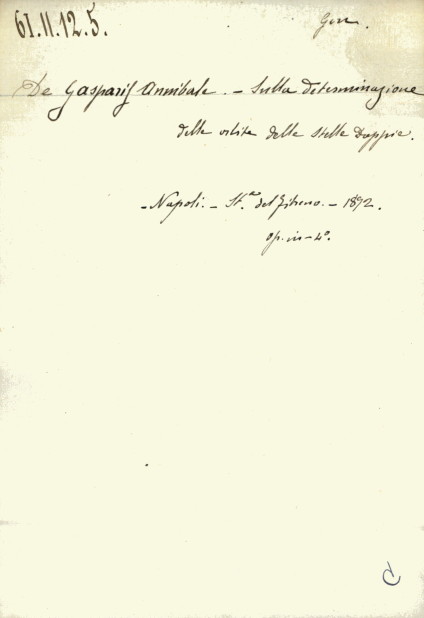 61.11.12.5.
De Gasparis Annibale. - Sulla determinazione
delle orbite delle stelle doppie.
- Napoli. - St.ª del Fibreno. - 1892.
op. in-4°.
C